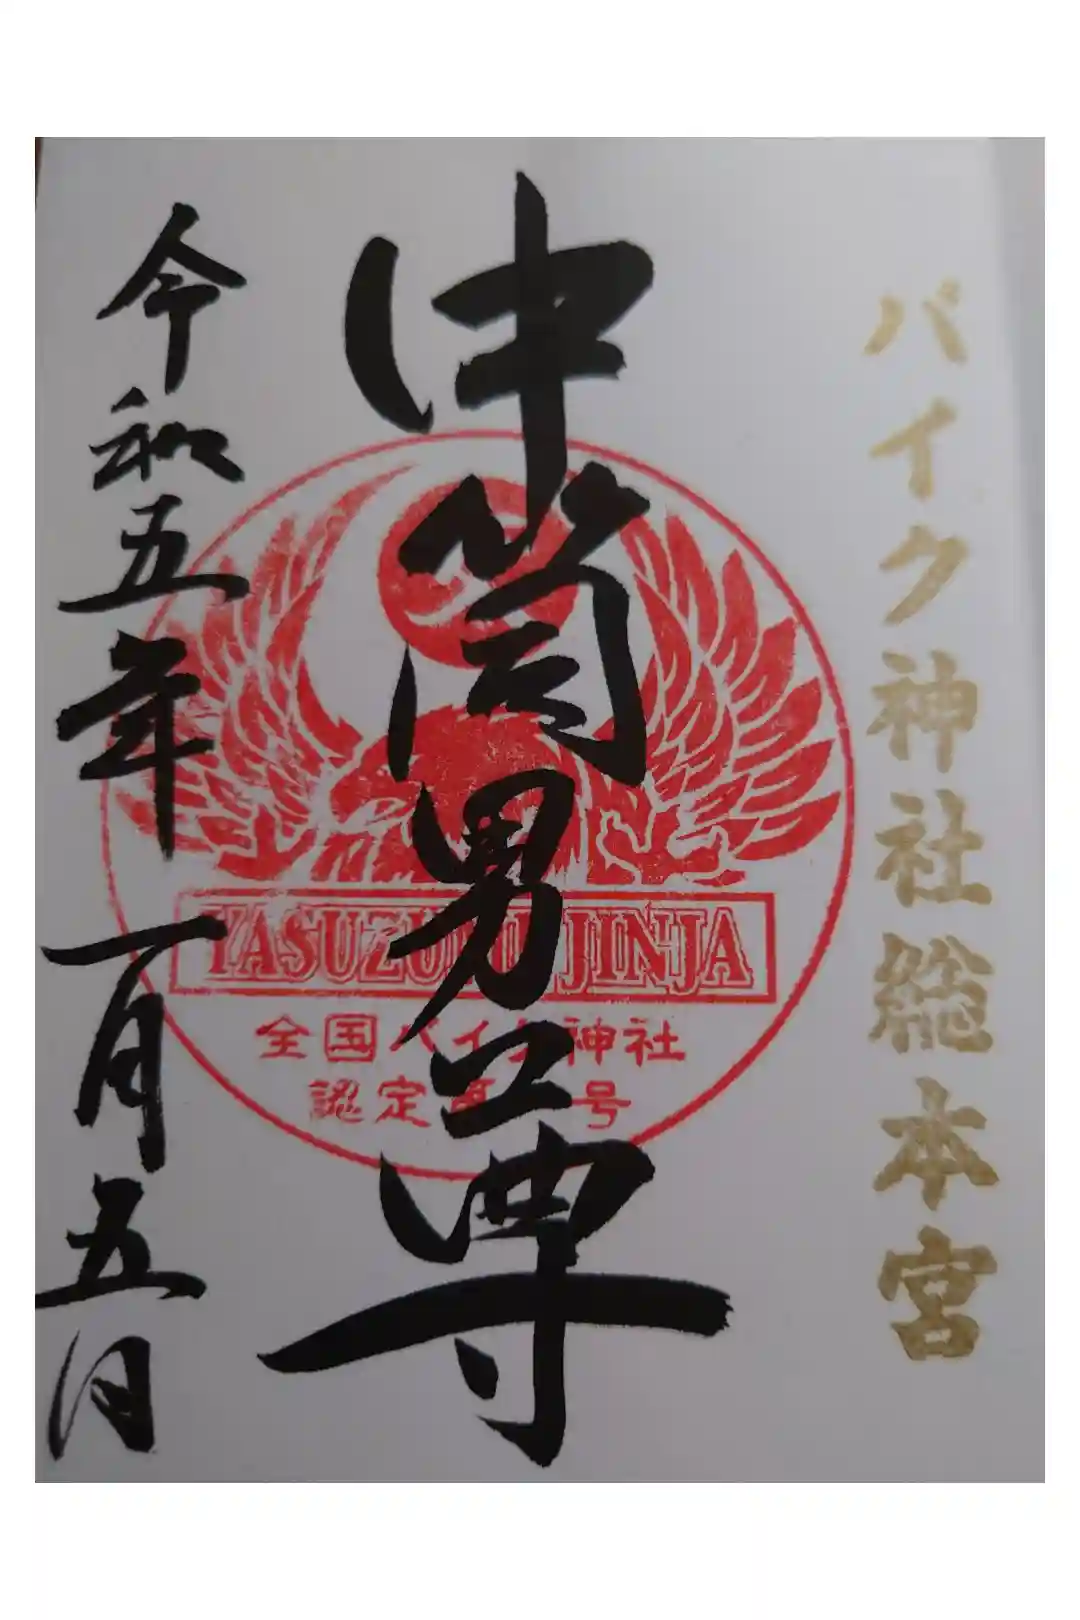 バイク神社総本宮
中筒男命
令和五年一月五日
YASUZUMI JINJA
全国バイク神社
認定第一号